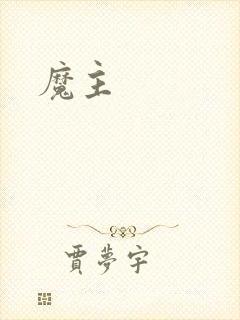 魔主
賈夢宇